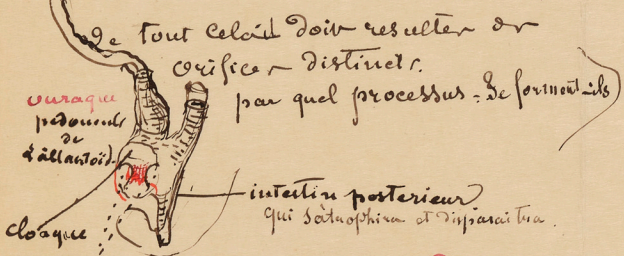 de tout celaİl doit resulter de
orifices distincts.
par quel processus = Se forment-ils
ouraque
pedoncule
de
L'allantoïd.
intestin posterieur
qui s'atrophiera et disparaitra.
cloaque